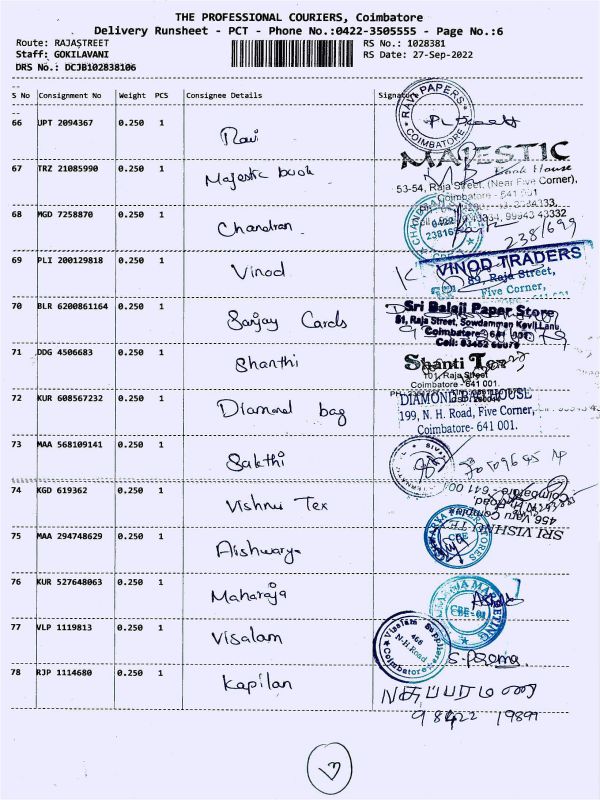 THE PROFESSIONAL COURIERS, Coimbatore
Delivery Runsheet - PCT - Phone No.:0422-3505555 - Page No.:6
Route: RAJASTREET
RS No.: 1028381
Staff: GOKILAVANI
RS Date: 27-Sep-2022
DRS No.: DCJB102838106
S No Consignment No Weight PCS Consignee Details Signature
66 UPT 2094367 0.250 1 Ravi
RAVI PAPERS
COIMBATORE
67 TRZ 21085990 0.250 1 Majestic book
MAJESTIC
Book House
53-54, Raja Street, (Near Five Corner),
Coimbatore - 641 001
99943 43332
68 MGD 7258870 0.250 1 Chandran
0422
23816
238/699
69 PLI 200129818 0.250 1 Vinod
VINOD TRADERS
89, Raja Street,
Five Corner,
70 BLR 6200861164 0.250 1 Sanjay Cards
Sri Balaji Paper Store
81, Raja Street, Sowdamman Kovil Lane,
Coimbatore
71 DDG 4506683 0.250 1 Shanthi
Shanti Tex
101, Raja Street
Coimbatore - 641 001.
72 KUR 608567232 0.250 1 Diamond bag
DIAMOND BAG HOUSE
199, N. H. Road, Five Corner,
Coimbatore- 641 001.
73 MAA 568109141 0.250 1 Sakthi
74 KGD 619362 0.250 1 Vishnu Tex
SRI VISHNU TEX
75 MAA 294748629 0.250 1 Aishwarya
CBE
76 KUR 527648063 0.250 1 Maharaja
77 VLP 1119813 0.250 1 Visalam
Visalam Suppliers
N.H. Road
Coimbatore
78 RJP 1114680 0.250 1 Kapilan